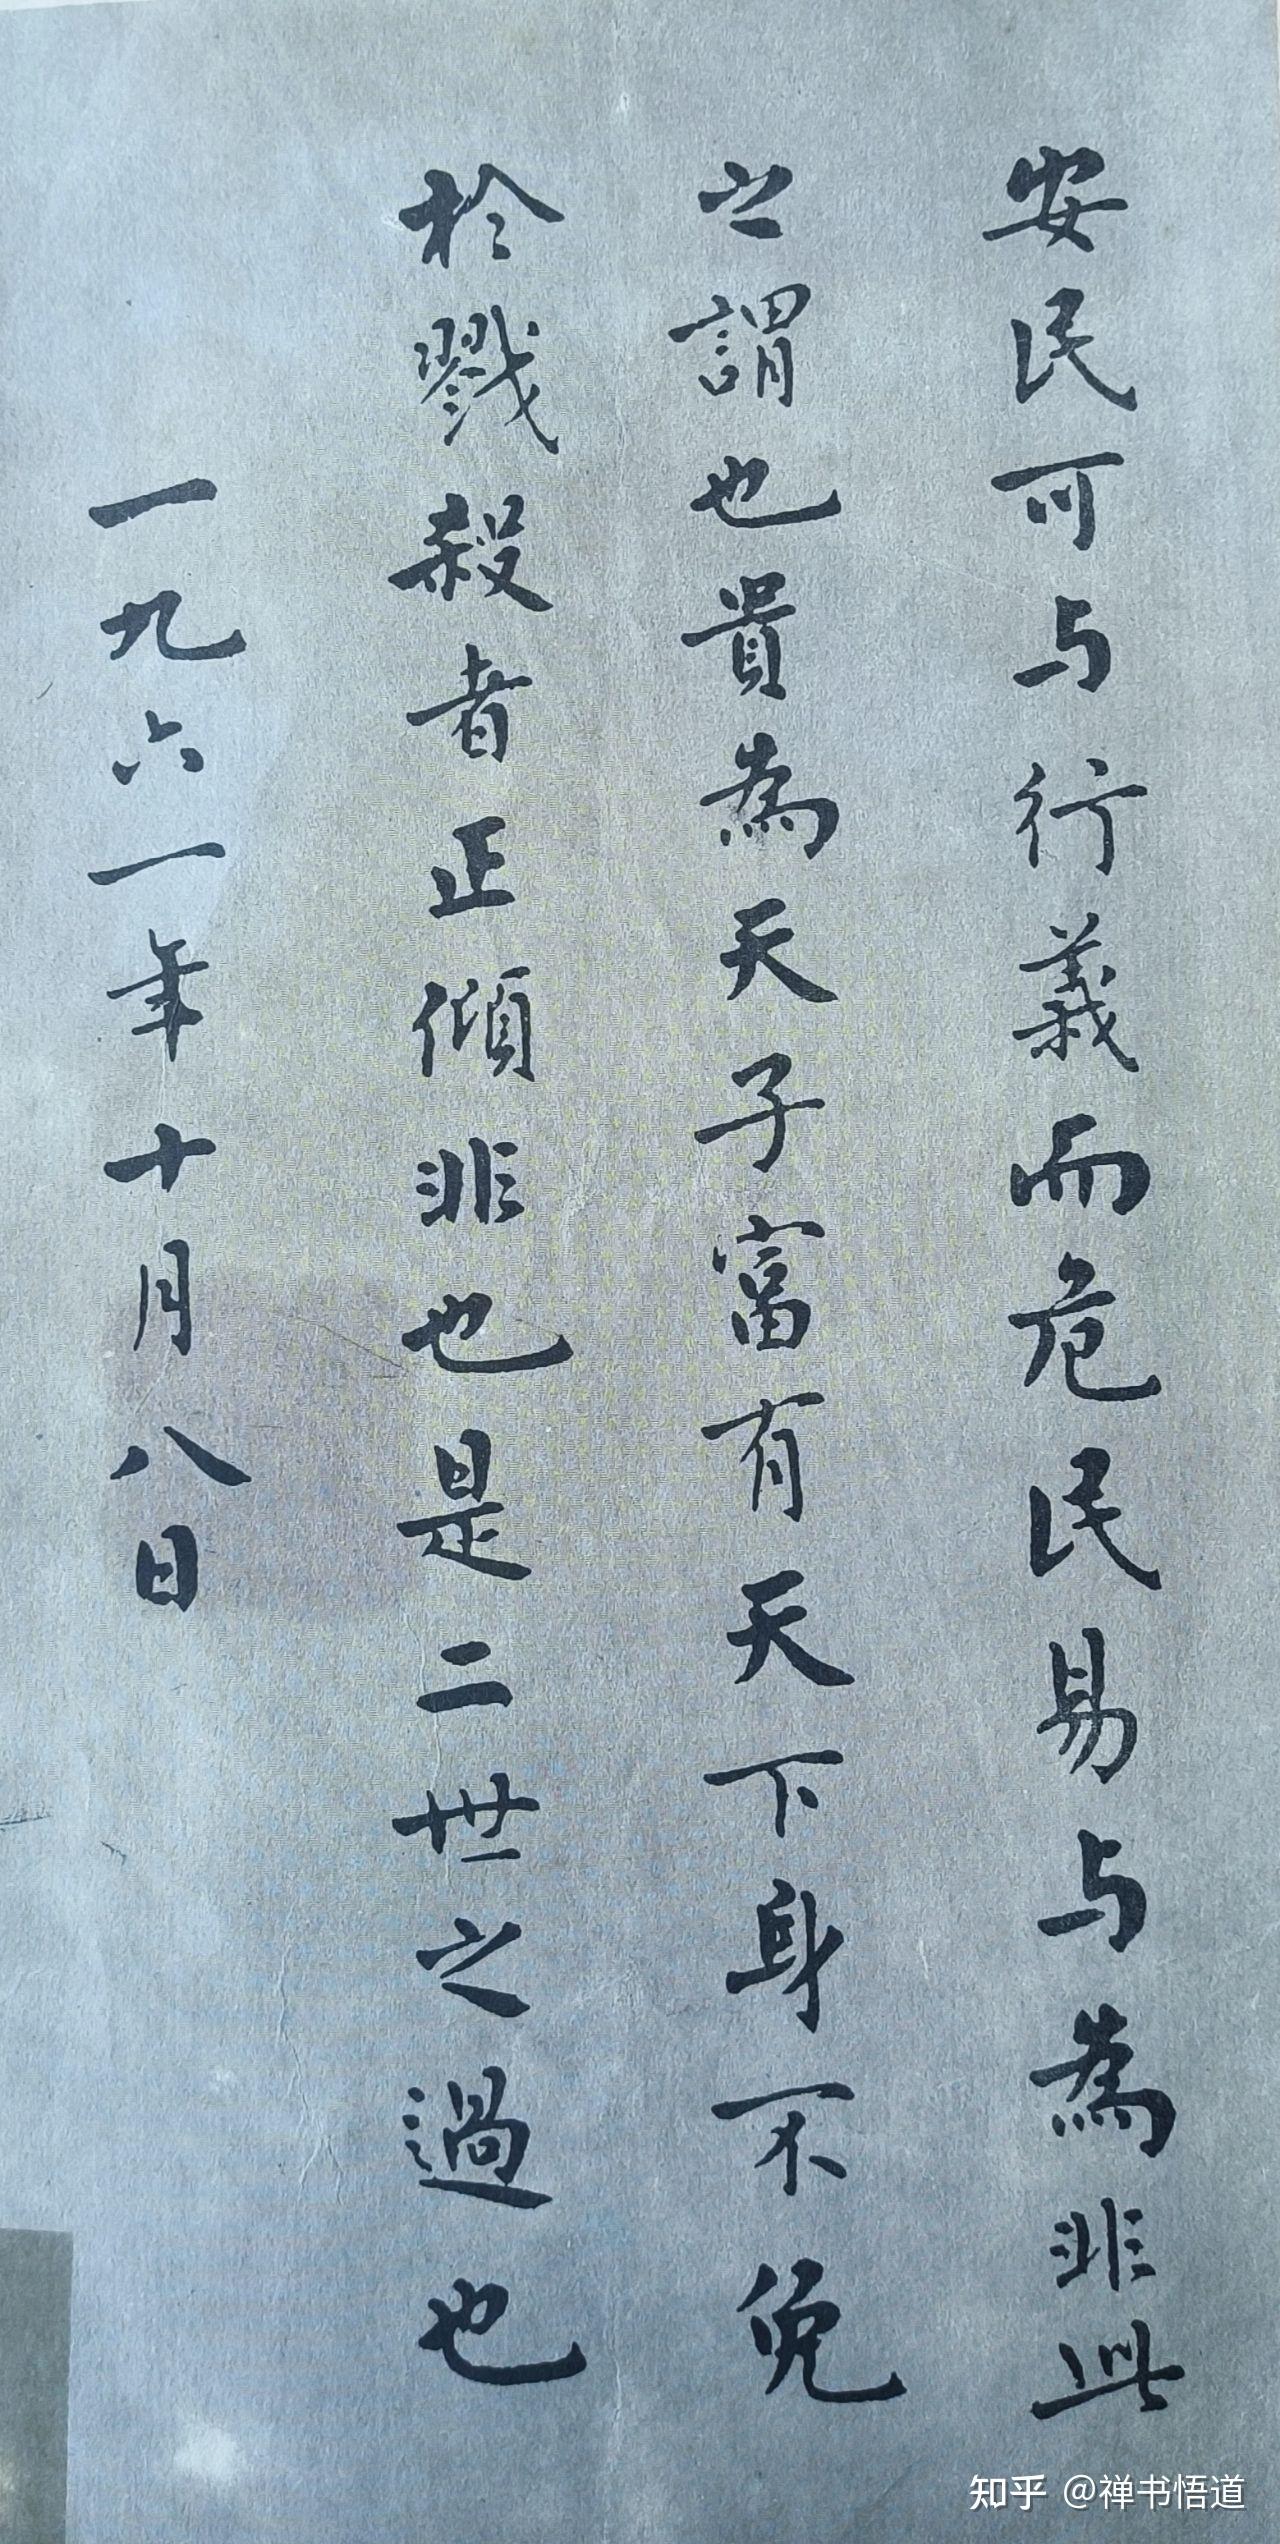 安民可与行義而危民易与為非此
之謂也貴為天子富有天下身不免
於戮殺者正傾非也是二世之過也
一九六一年十月八日
知乎 @禅书悟道